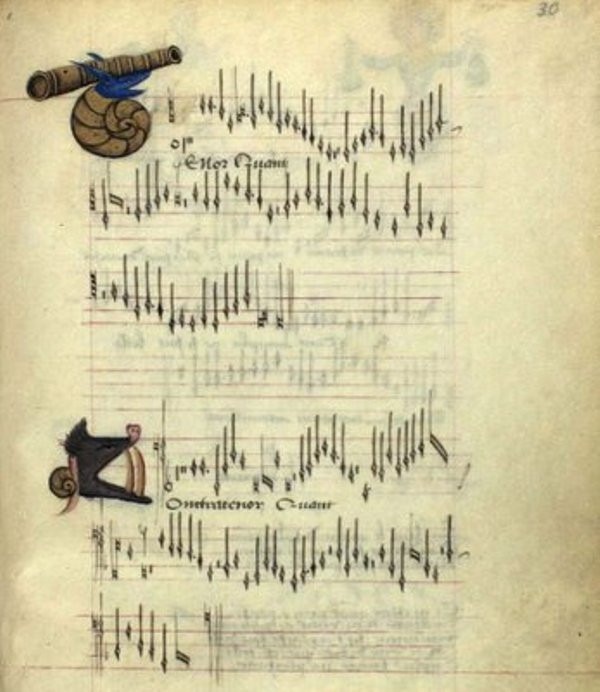 30
Enor Quant
Ontratenor Quant